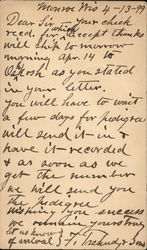 Monroe Wis 4-13-99
Dear Sir - Your check
recd. for which accept thanks
will ship to morrow
morning Apr. 14 to
Oshkosh as you stated
in your letter.
You will have to wait
a few days for pedigree
will send it in &
have it recorded
& as soon as we
get the number
we will send you
the pedigree
wishing you success
we remain yours truly
let us know
of arrival &
Sons